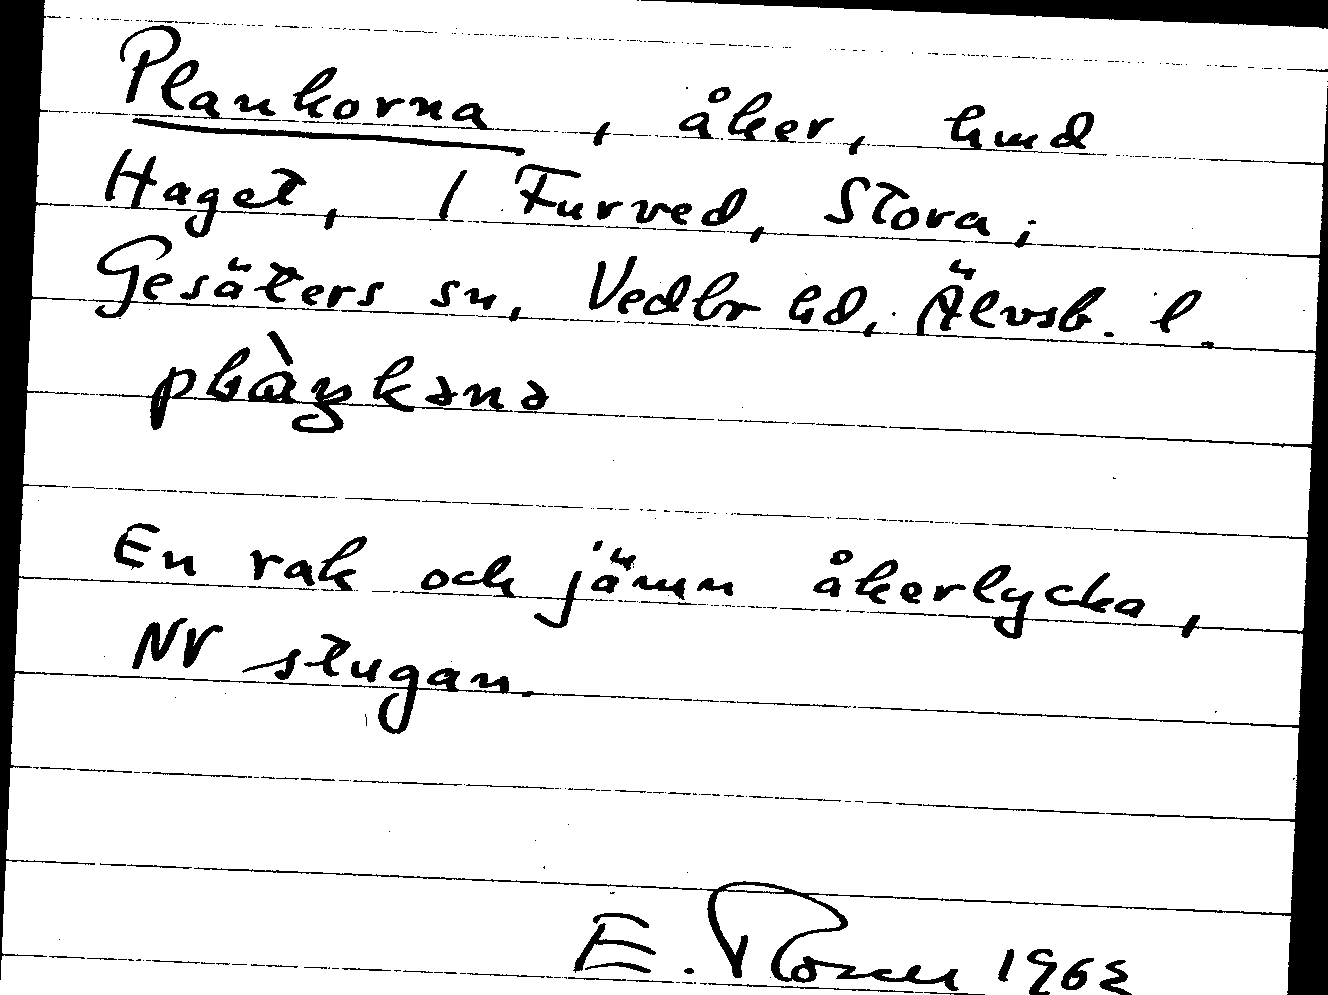 Plankorna, åker, hmd
Haget, 1 Furved, Stora;
Gesäters sn, Vedbr hd, Älvsb. l.
En rak och jämn åkerlycka,
NV stugan.
E. 1962